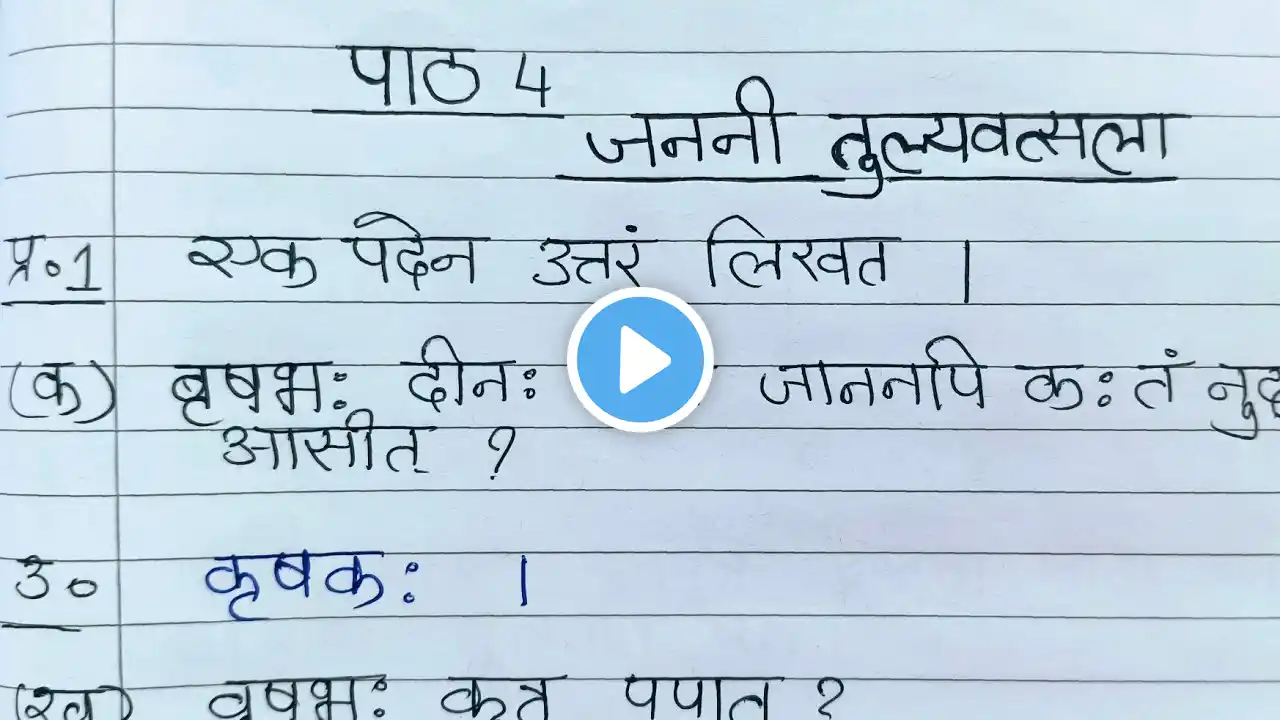 पाठ 4
जननी तुल्यवत्सला
प्र.1 एक पदेन उत्तरं लिखत ।
(क) वृषभः दीनः जानन्नपि कः तं
आसीत् ?
उ० कृषकः ।
(ख) वृषभः कुत्र पपात ?